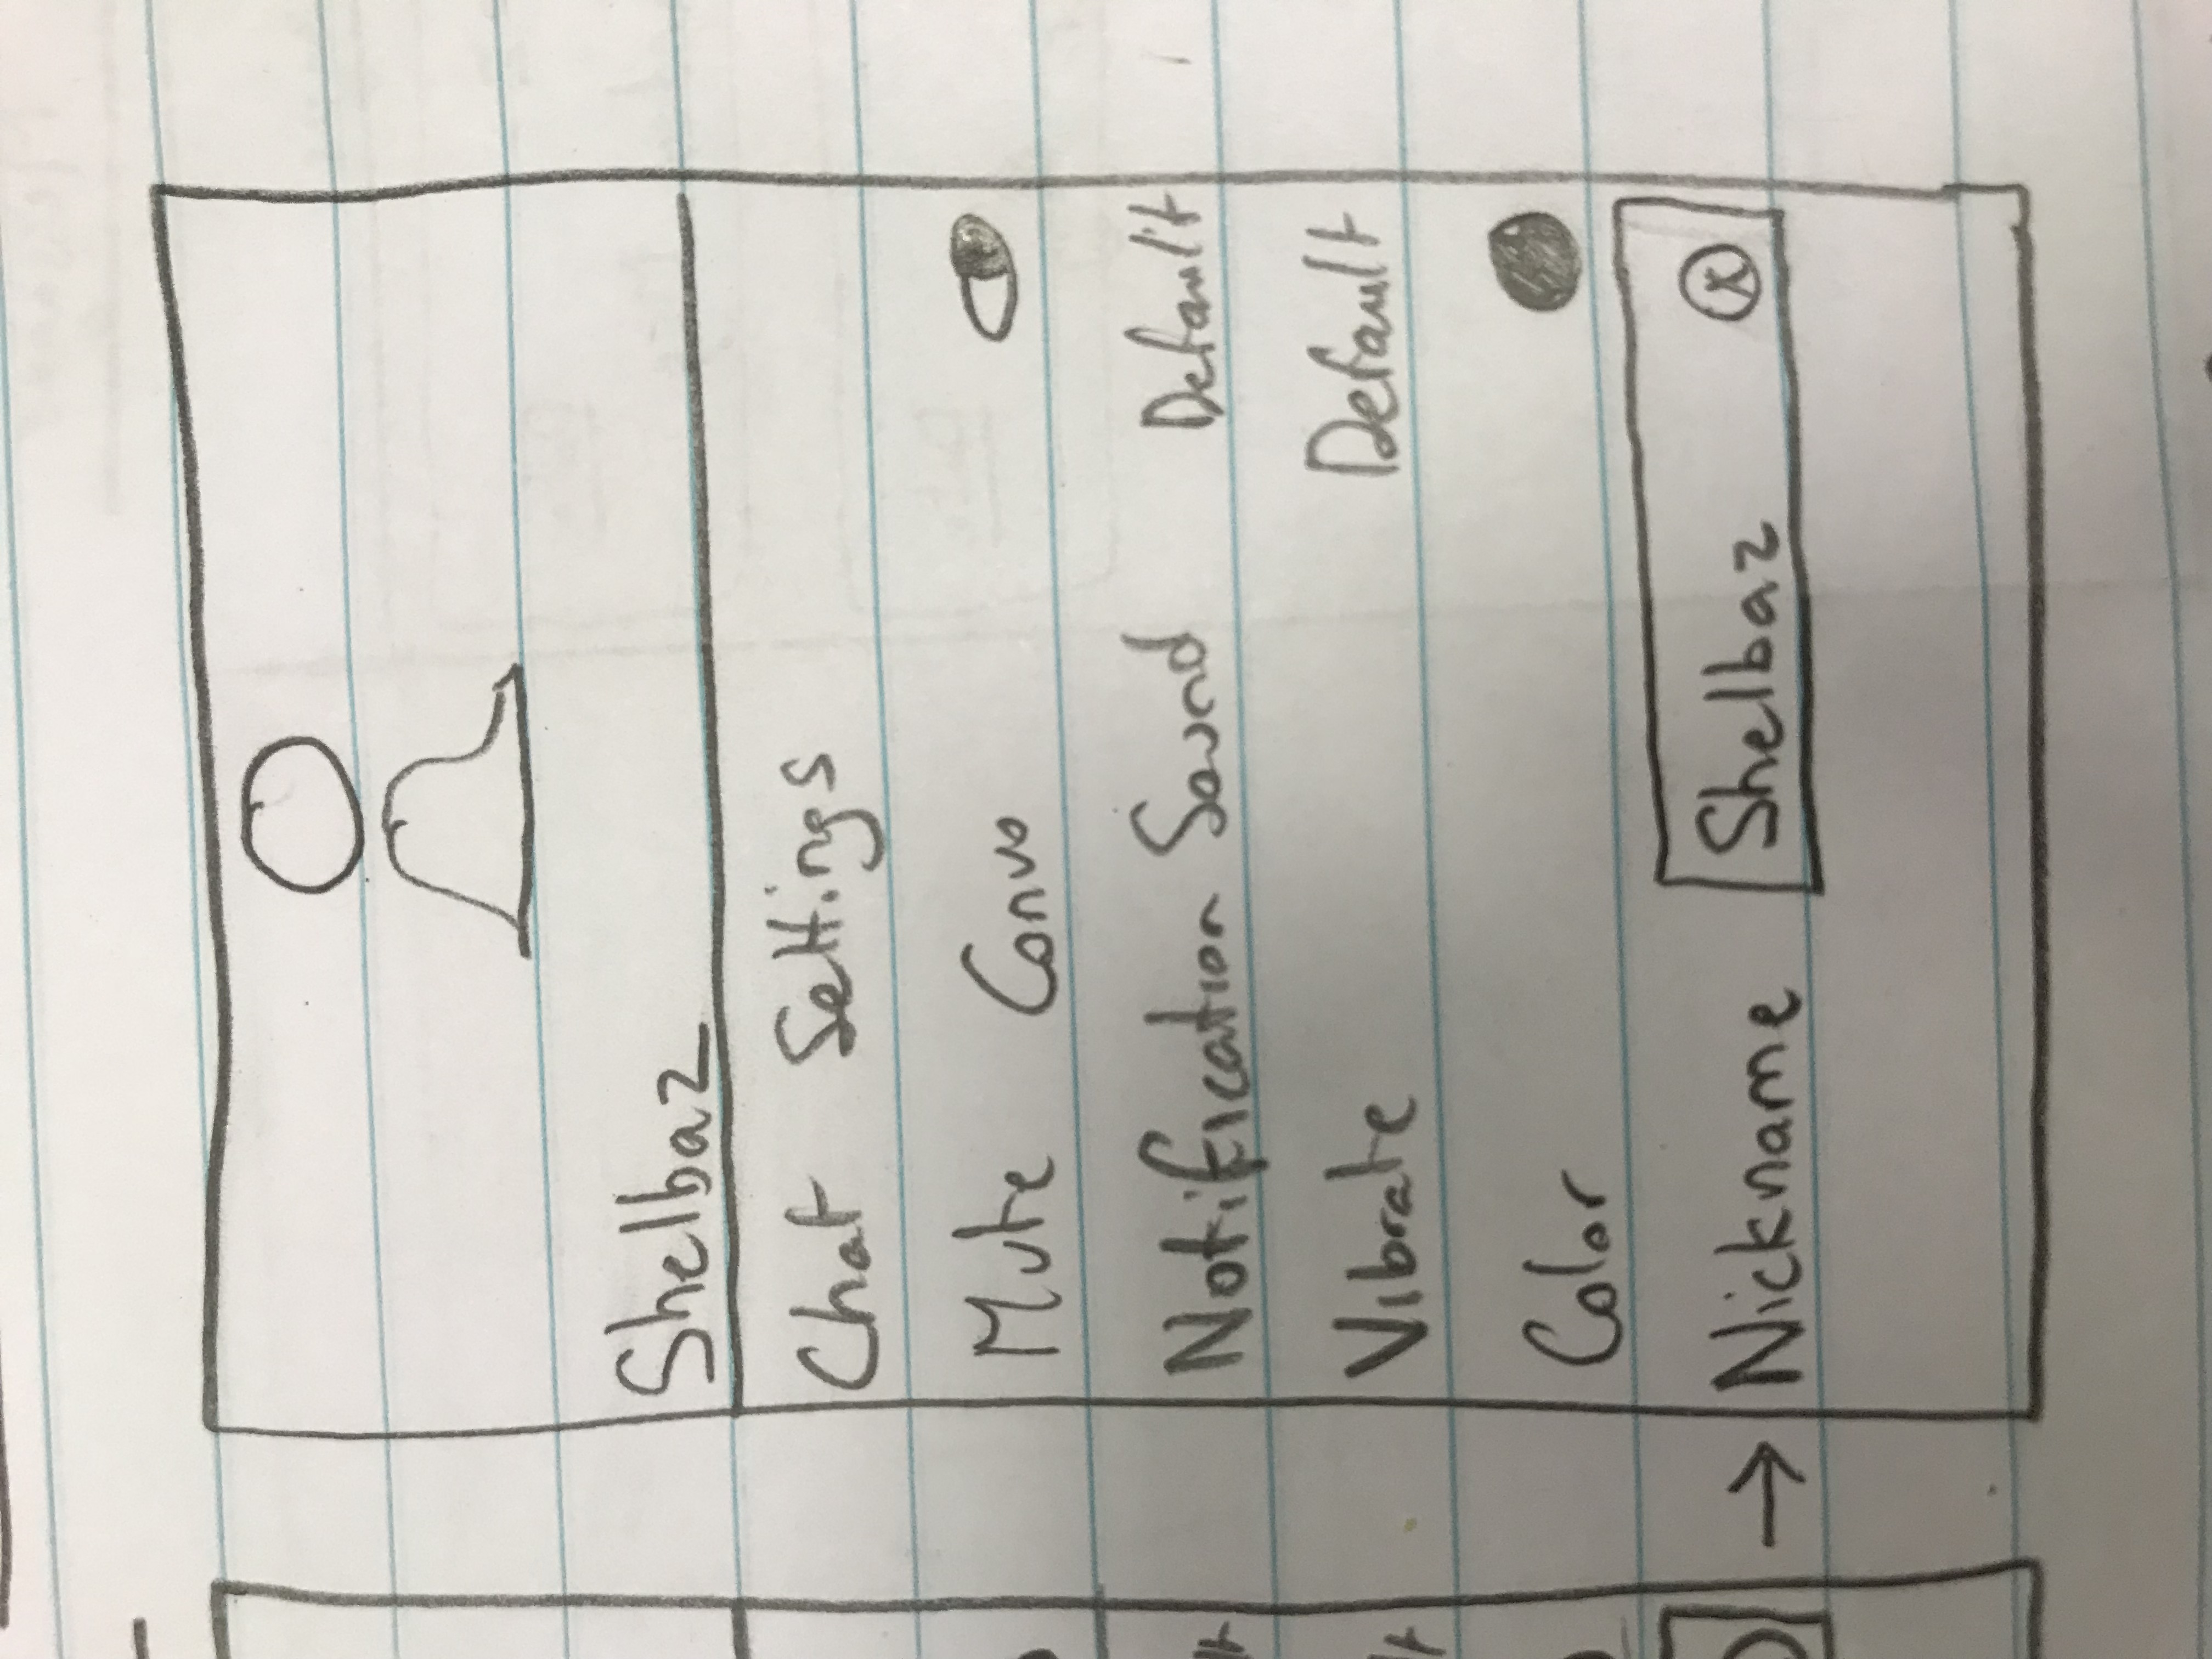 Shelbaz
Chat Settings
Mute Convo
Notification Sound Default
Vibrate Default
Color
→ Nickname Shelbaz ⓧ